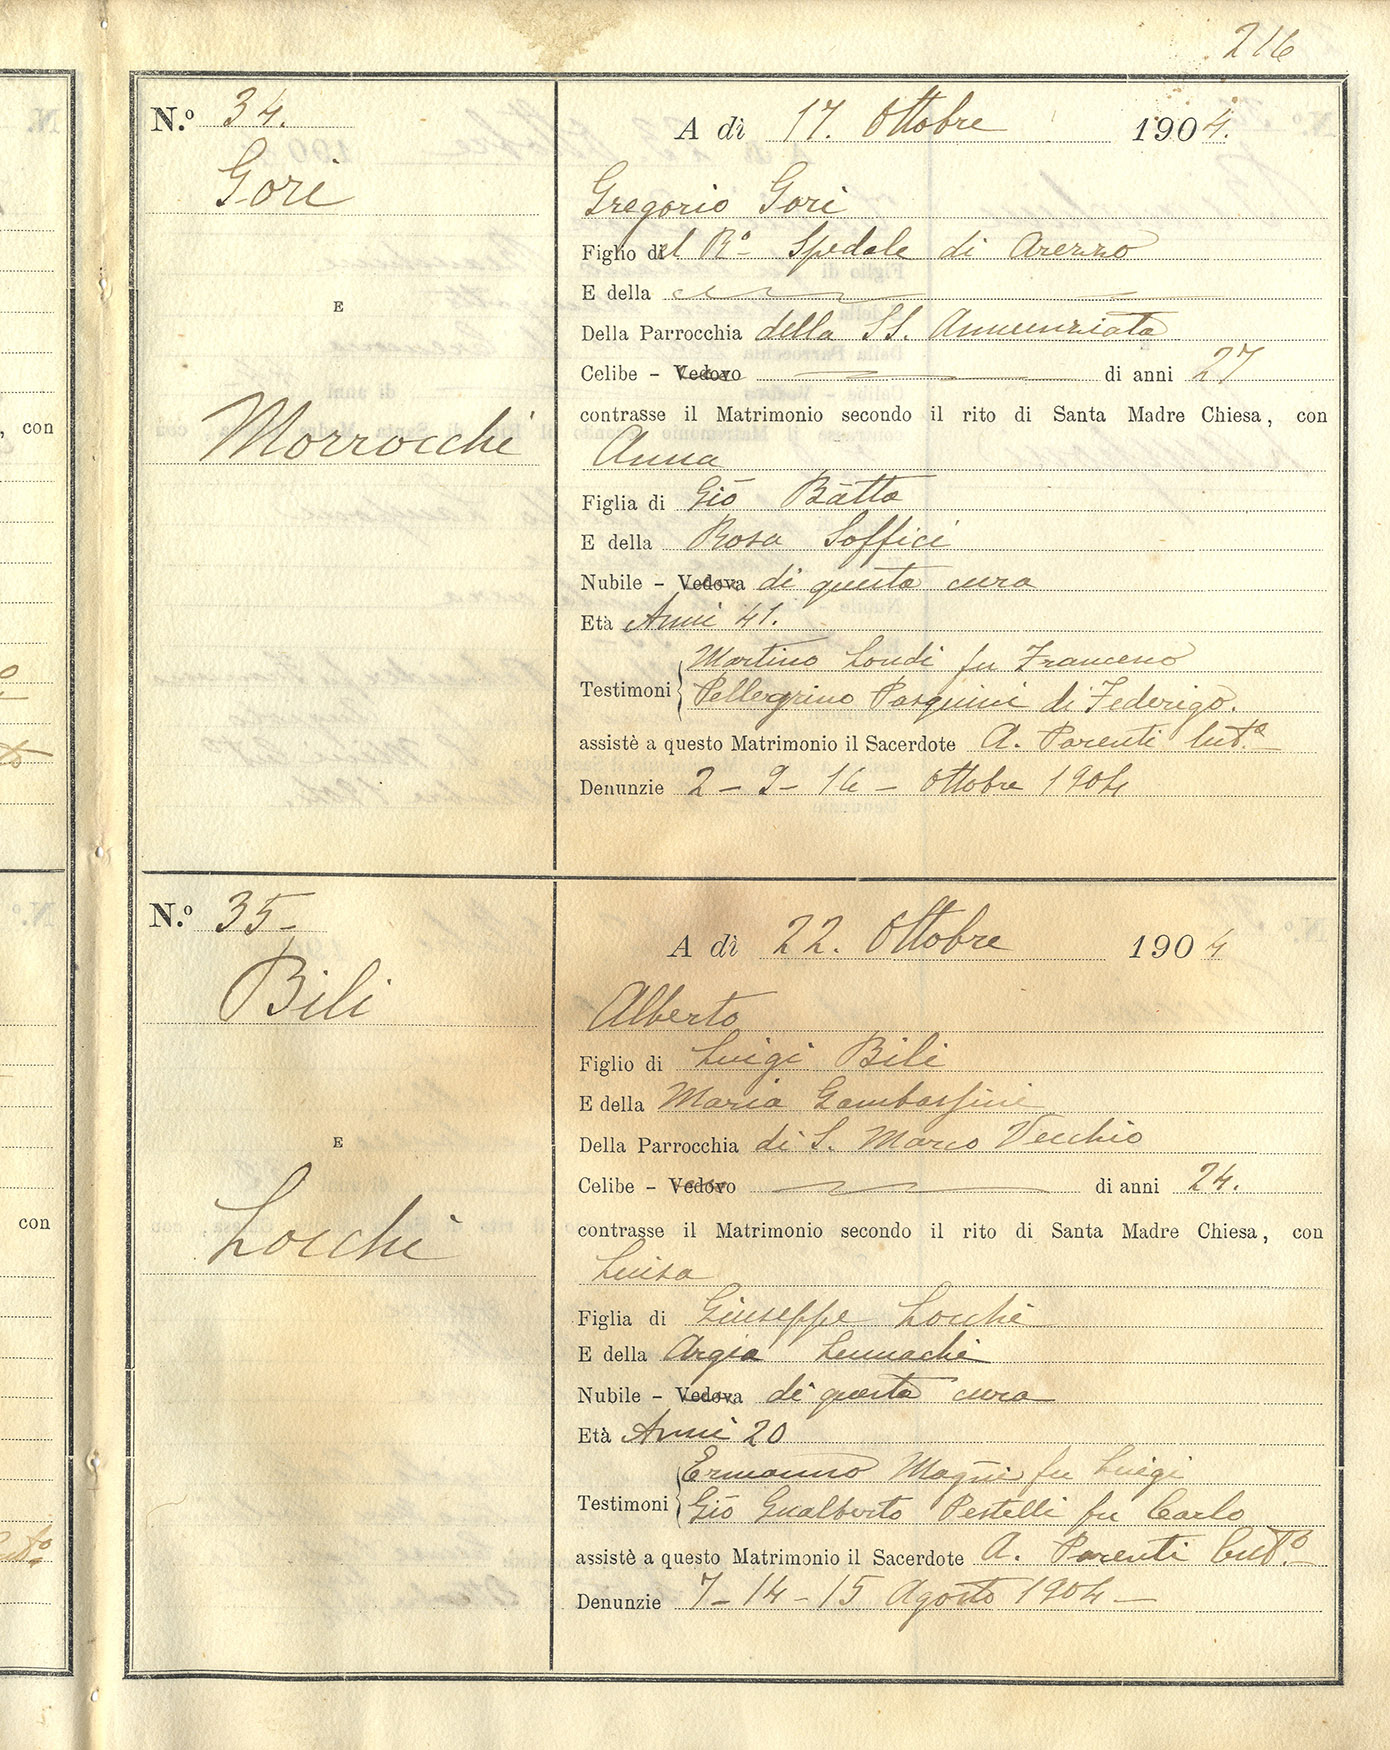 216
N.º 34.
Gori
E
Morrocchi
A dì 17. Ottobre 1904.
Gregorio Gori
Figlio del Rº Spedale di Arezzo
E della
Della Parrocchia della SS. Annunziata
Celibe - Vedovo di anni 27
contrasse il Matrimonio secondo il rito di Santa Madre Chiesa, con
Anna
Figlia di Gio Batta
E della Rosa Soffici
Nubile - Vedova di questa cura
Età Anni 41.
Martino Londi fu Francesco
Testimoni Pellegrino Pasquini di Federigo.
assistè a questo Matrimonio il Sacerdote A. Parenti
Denunzie 2 - 9 - 16 - Ottobre 1904
N.º 35-
Bili
E
Locchi
A dì 22. Ottobre 1904
Alberto
Figlio di Luigi Bili
E della Maria Gambassini
Della Parrocchia di S. Marco Vecchio
Celibe - Vedovo di anni 24.
contrasse il Matrimonio secondo il rito di Santa Madre Chiesa, con
Luisa
Figlia di Giuseppe Locchi
E della Argia
Nubile - Vedova di questa cura
Età Anni 20
Ermanno Magni fu Luigi
Testimoni Gio Gualberto Pestelli fu Carlo
assistè a questo Matrimonio il Sacerdote A. Parenti
Denunzie 7 - 14 - 15 Agosto 1904 -
, con
con